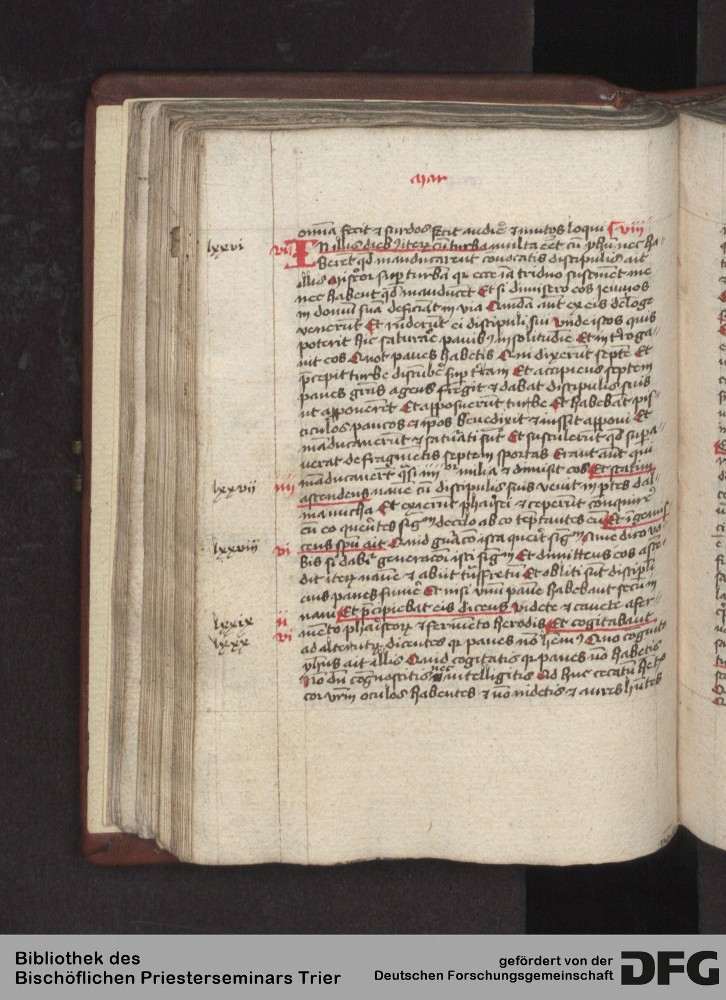 mar
omnia fecit et surdos fecit audire et mutos loqui viii
lxxvi vi In illis diebus iterum cum turba multa esset cum ihesu nec ha-
berent quod manducarent convocatis discipulis ait
illis Misereor super turbam quia ecce iam triduo sustinent me
nec habent quod manducent Et si dimisero eos ieiunos
in domum suam deficient in via Quidam autem ex eis de longe
venerunt Et responderunt ei discipuli sui Unde istos quis
poterit hic saturare panibus in solitudine Et interroga-
uit eos Quot panes habetis Qui dixerunt septem Et
precepit turbe discumbere super terram Et accipiens septem
panes gracias agens fregit et dabat discipulis suis
ut apponerent Et apposuerunt turbe Et habebant pis-
ciculos paucos et ipsos benedixit et iussit apponi Et
manducaverunt et saturati sunt Et sustulerunt quod supa-
uerat de fragmentis septem sportas Erant autem qui
lxxvii iiii manducaverant quasi iiii or milia et dimisit eos Et statim
ascendens navem cum discipulis suis venit in partes dal-
manutha Et exierunt pharisei et ceperunt conquirere
cum eo querentes signum de celo ab eo temptantes eum Et ingemis-
lxxviii vi cens spiritu ait Quid generacio ista querit signum Amen dico vo-
bis si dabitur generacioni isti signum Et dimittens eos ascen-
dit iterum navem et abiit trans fretum Et obliti sunt discipuli
eius panes sumere Et nisi unum panem habebant secum in
lxxix ii navi Et precipiebat eis dicens videte et cavete a fer-
lxxx vi mento phariseorum et fermento herodis Et cogitabant
ad alterutrum dicentes quia panes non habemus Quo cognito
ihesus ait illis Quid cogitatis quia panes non habetis
No dum cognoscitis nec intelligitis Ad huc cecatum habetis
cor vestrum oculos habentes et non videtis et aures habentes
Bibliothek des
Bischöflichen Priesterseminars Trier
gefördert von der
Deutschen Forschungsgemeinschaft
DFG